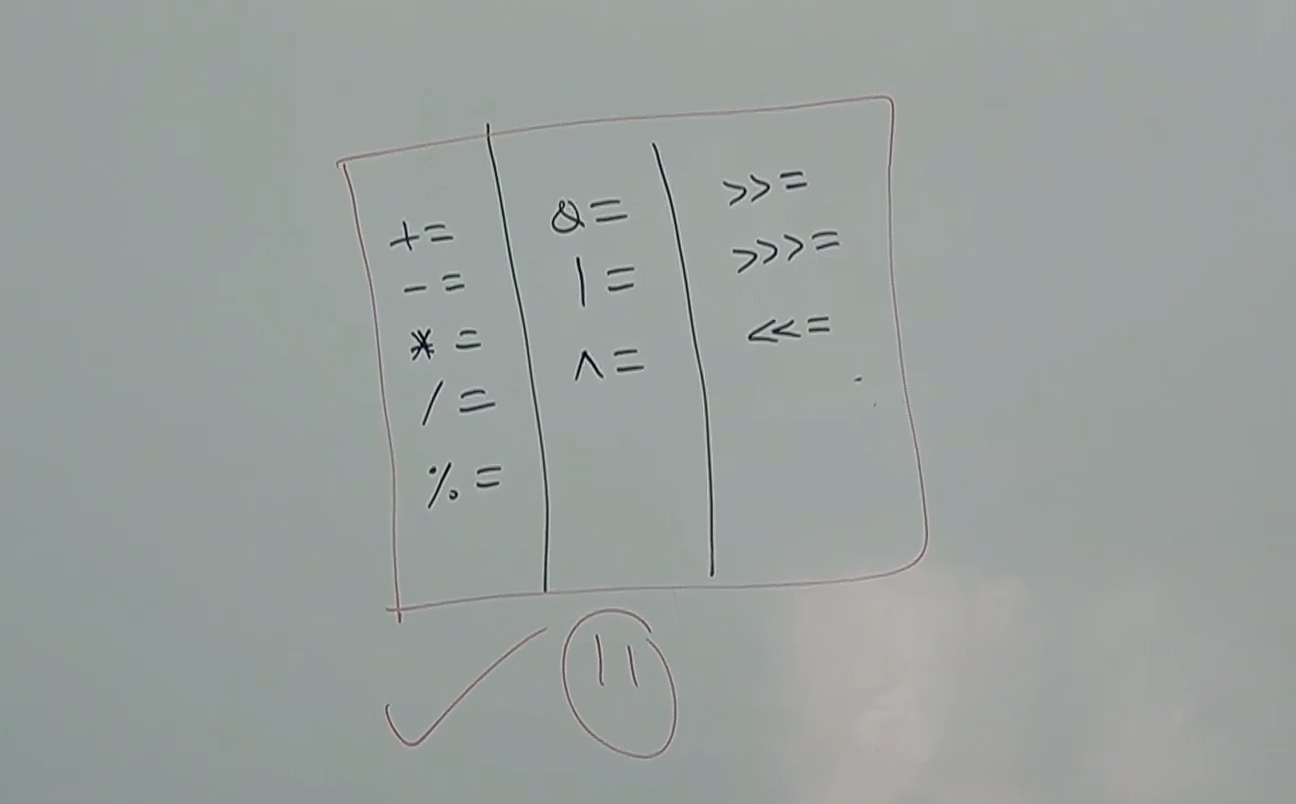 +=
-=
*=
/=
%=
&=
|=
^=
>>=
>>>=
<<=
11